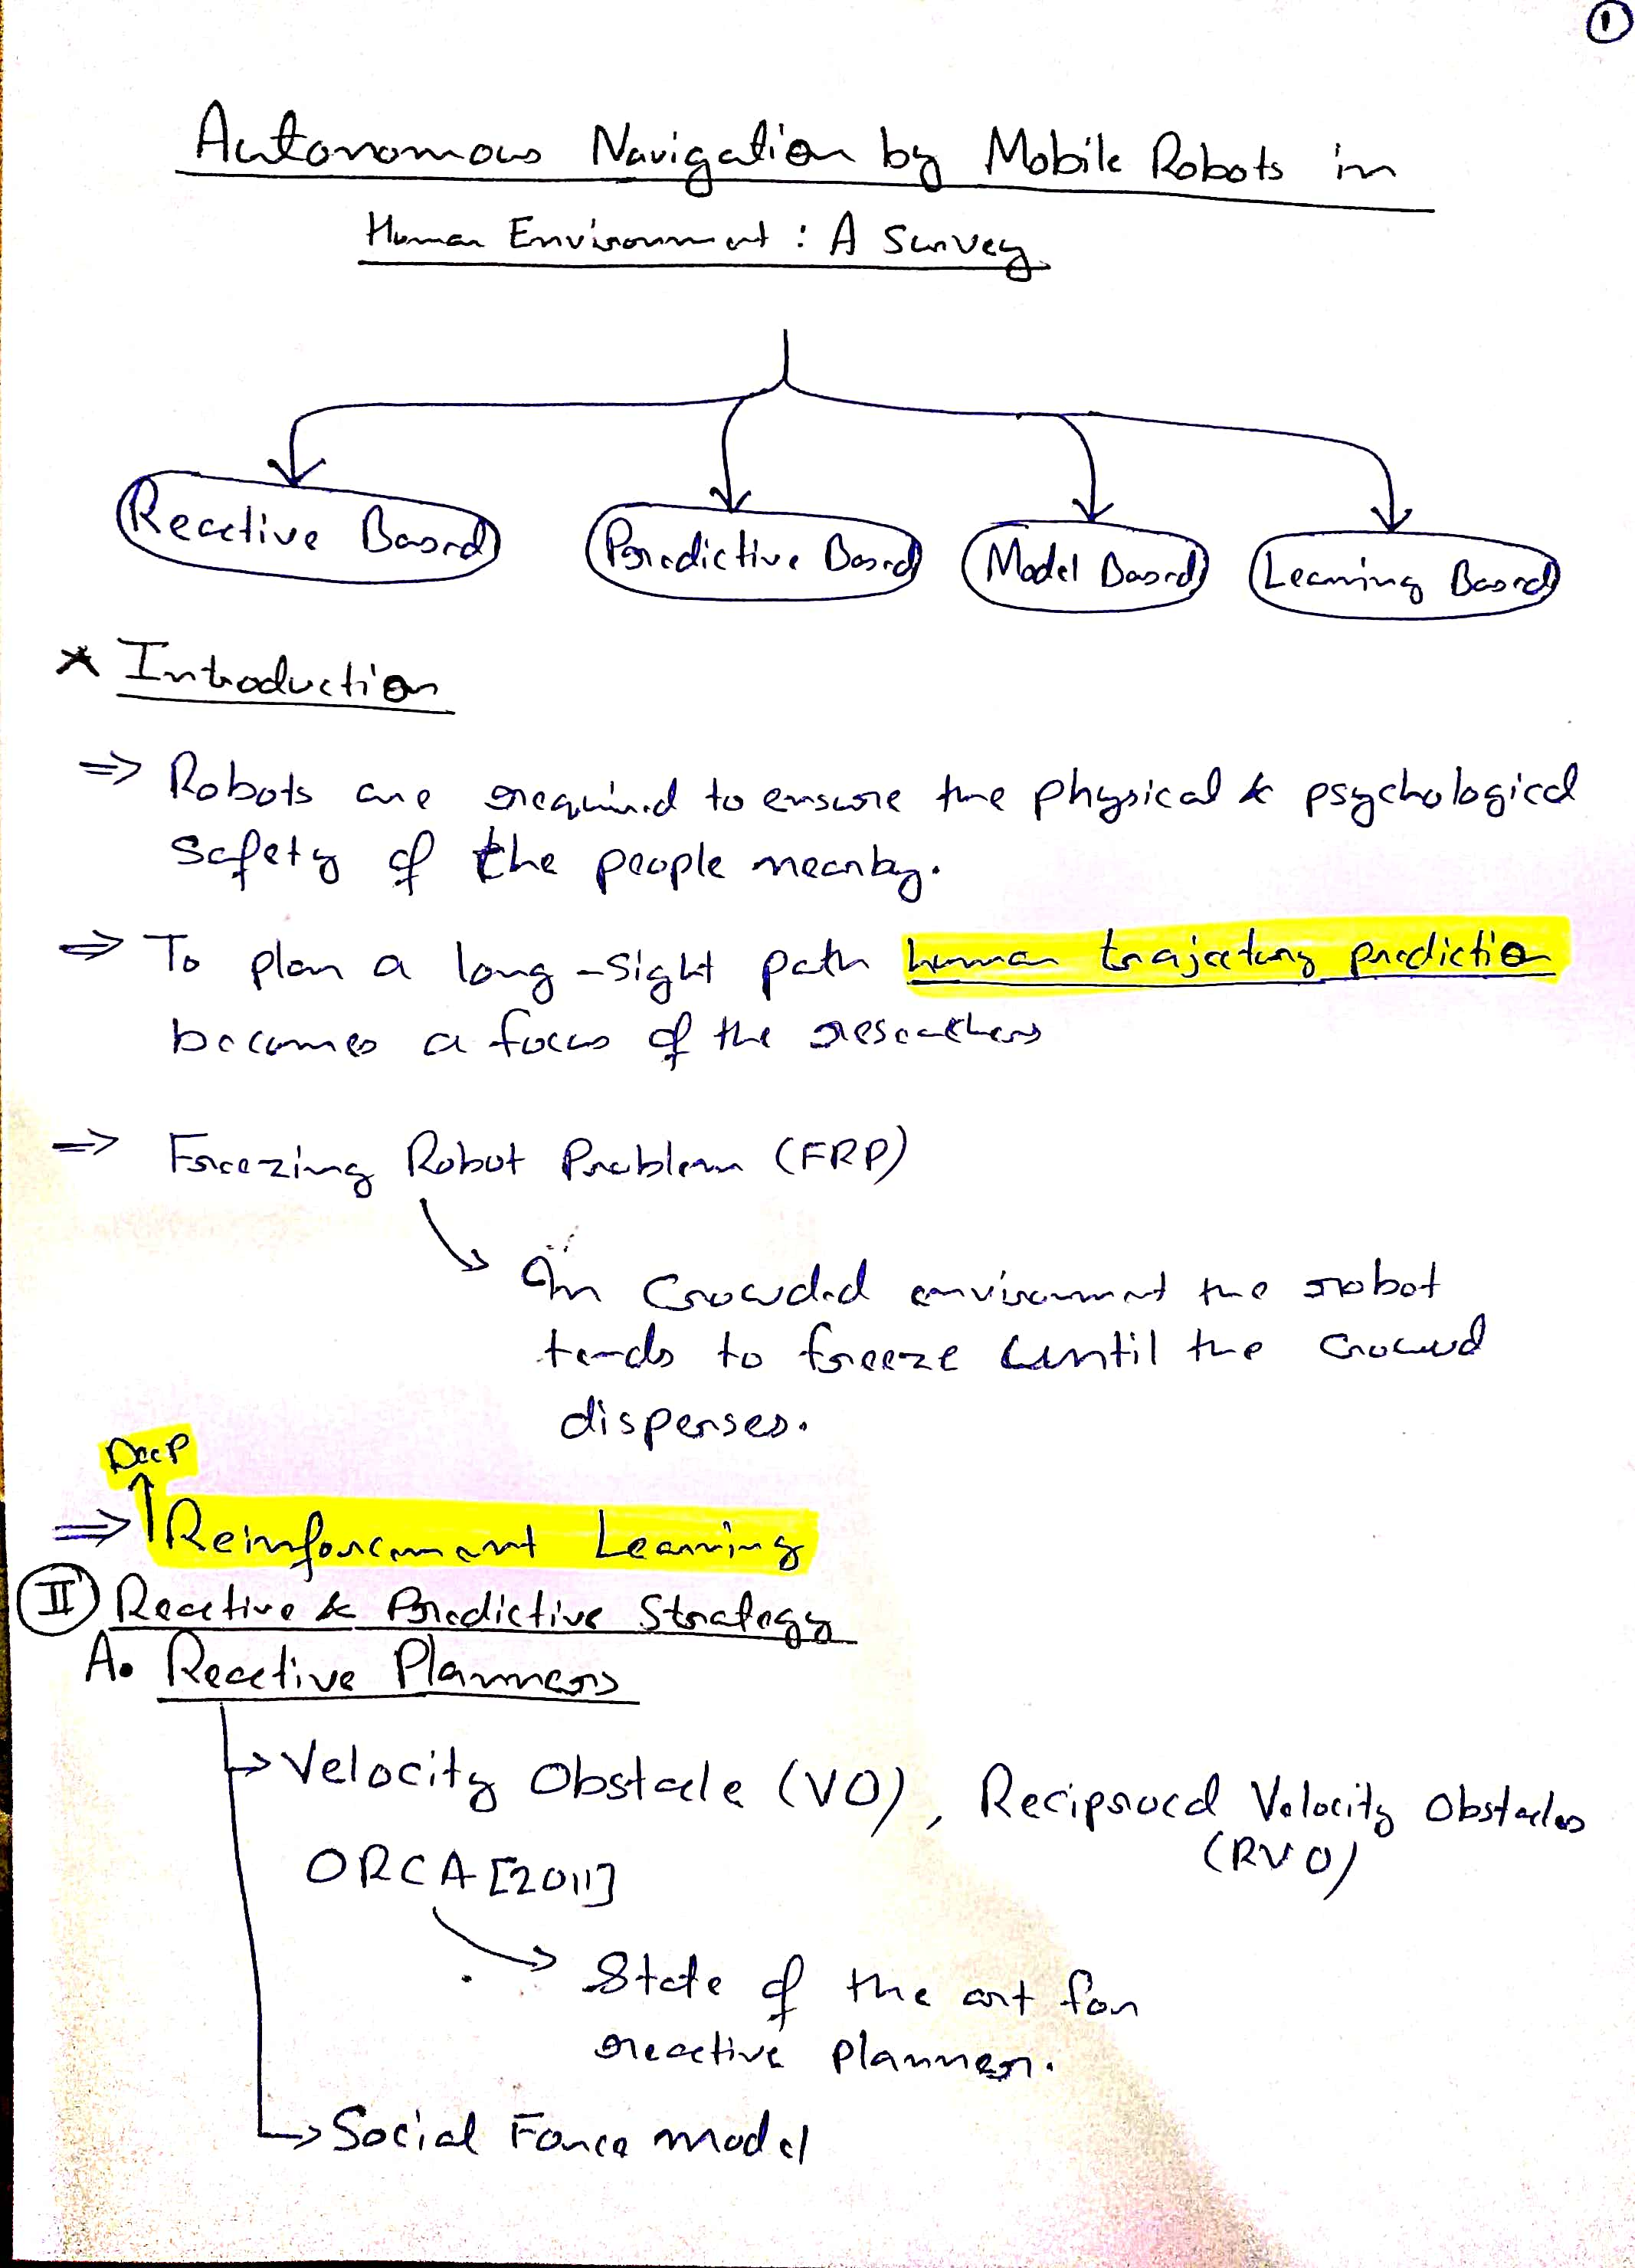 1
Autonomous Navigation by Mobile Robots in
Human Environment : A Survey
Reactive Based
Predictive Based
Model Based
Learning Based
* Introduction
⇒ Robots are required to ensure the physical & psychological
safety of the people nearby.
⇒ To plan a long-sight path human trajectory prediction
becomes a focus of the reseathers
⇒ Freezing Robot Problem (FRP)
In crowded environment the robot
tends to freeze until the crowd
disperses.
Deep
⇒ Reinforcement Learning
II Reactive & Predictive Strategy
A. Reactive Planners
Velocity Obstacle (VO), Reciprocal Velocity Obstacles
(RVO)
ORCA [2011]
State of the art for
reactive planner.
Social Force model